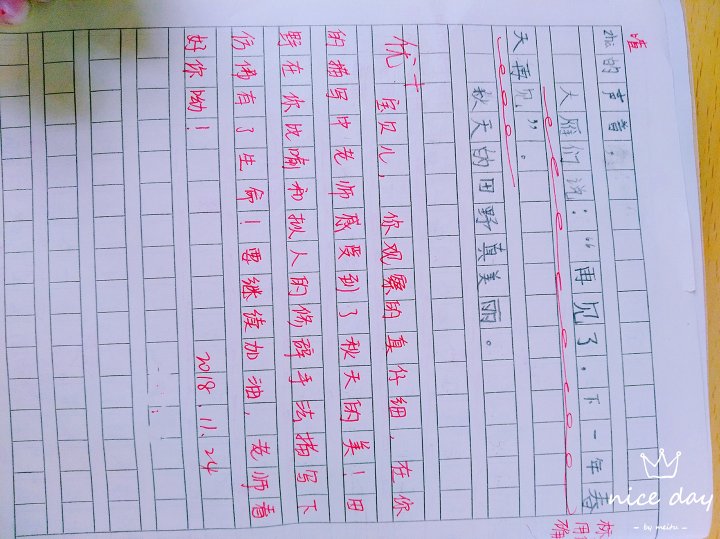 噎
的声音。
大雁们说：“再见了，下一年春
天再见”。
秋天的田野真美丽。
优+
宝贝儿，你观察的真仔细，在你
的描写中老师感受到了秋天的美！田
野在你比喻和拟人的修辞手法描写下
仿佛有了生命！要继续加油，老师看
好你呦！
2018.11.24
nice day
- by meitu -